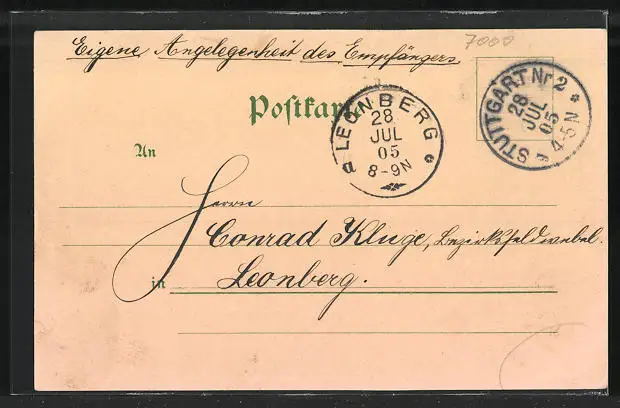 Eigene Angelegenheit des Empfängers
7000
Postkarte
STUTTGART Nr 2
28
JUL
05
4-5N
LEONBERG
28
JUL
05
8-9N
An
Herrn
Conrad Kluge, Bezirksfeldwebel.
in Leonberg.